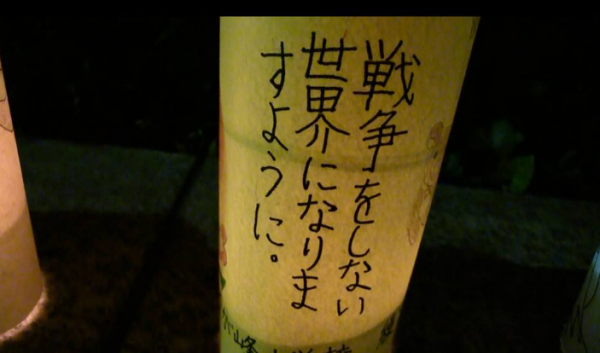 戦争をしない
世界になりま
すように。